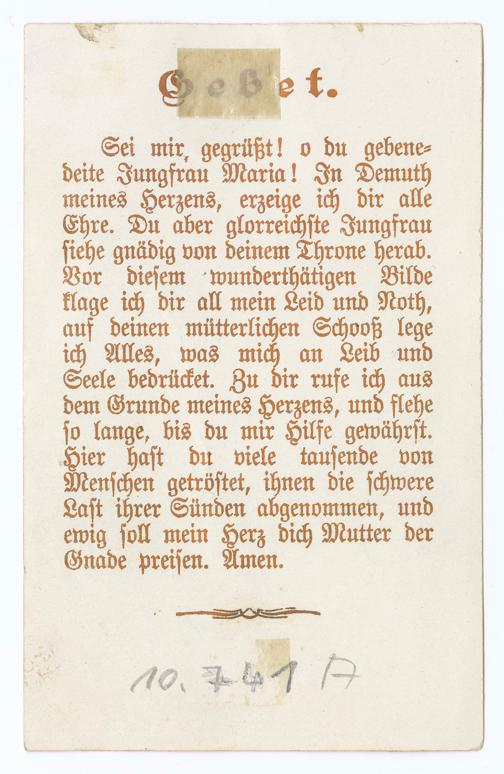 Gebet.
Sei mir gegrüßt! o du gebene-
deite Jungfrau Maria! In Demuth
meines Herzens, erzeige ich dir alle
Ehre. Du aber glorreichste Jungfrau
siehe gnädig von deinem Throne herab.
Vor diesem wunderthätigen Bilde
klage ich dir all mein Leid und Noth,
auf deinen mütterlichen Schooß lege
ich Alles, was mich an Leib und
Seele bedrücket. Zu dir rufe ich aus
dem Grunde meines Herzens, und flehe
so lange, bis du mir Hilfe gewährst.
Hier hast du viele tausende von
Menschen getröstet, ihnen die schwere
Last ihrer Sünden abgenommen, und
ewig soll mein Herz dich Mutter der
Gnade preisen. Amen.
10.741 A